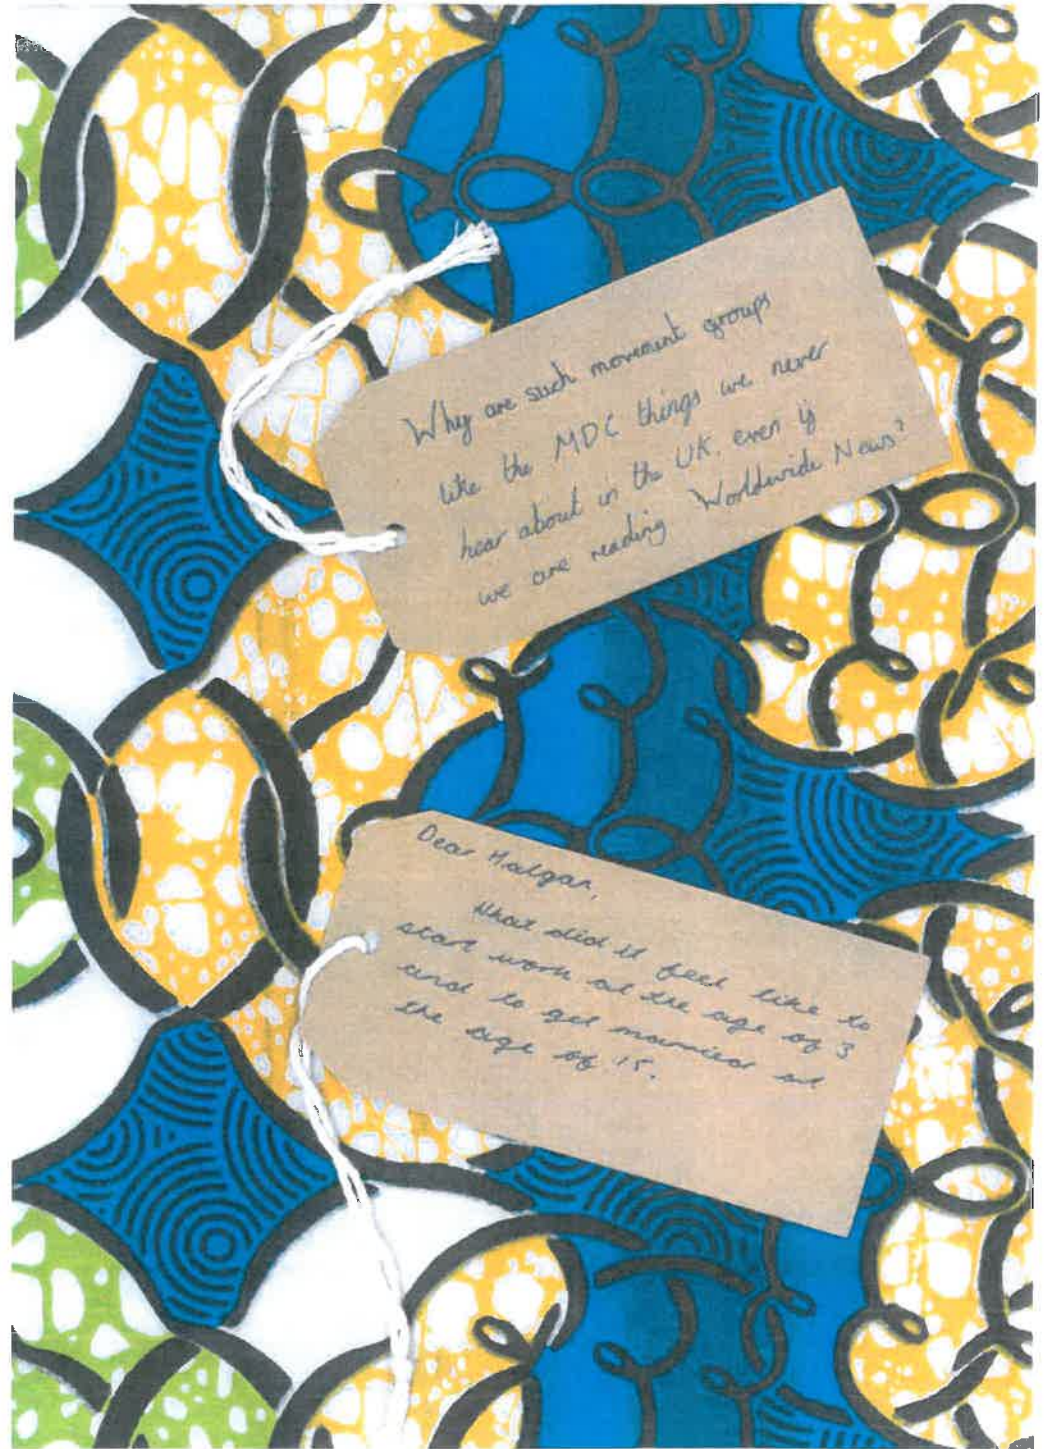 Why are such movement groups
like the MDC things we never
hear about in the UK. even if
we are reading Worldwide News?
Dear Halgan,
What did it feel like to
start work at the age of 3
and to get married at
the age of 15.